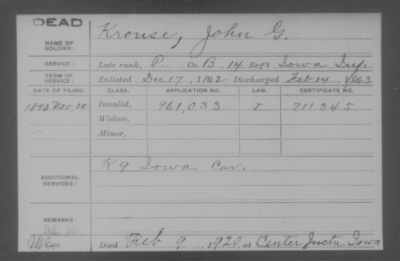 DEAD
NAME OF SOLDIER: Krouse, John G.
SERVICE: Late rank, P. Co. B, 14 Reg't Iowa Inf.
TERM OF SERVICE: Enlisted Dec 17, 1862 Discharged Feb 14, 1863
DATE OF FILING. CLASS. APPLICATION NO. LAW. CERTIFICATE NO.
1890 Nov. 20 Invalid, 961,033 J 711345
Widow,
Minor,
ADDITIONAL SERVICES: K 9 Iowa Cav.
REMARKS:
Died Feb 9, 1920, at Center Iowa